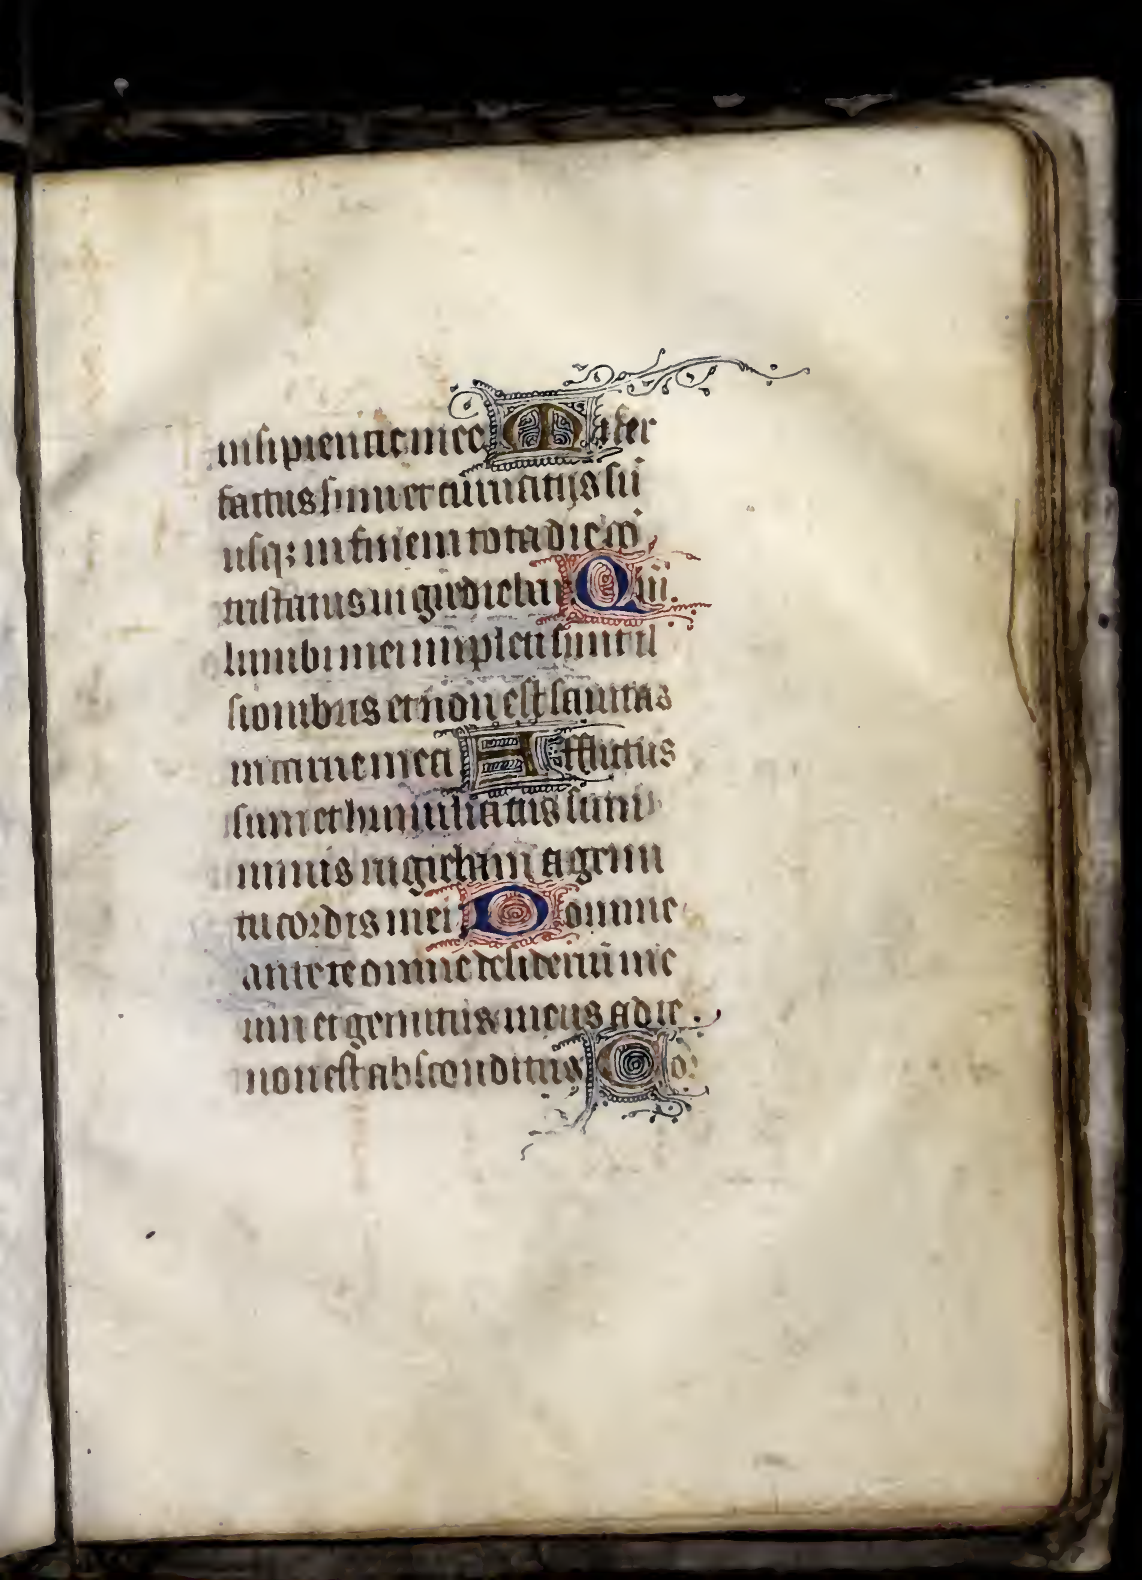 insipientie mee Miser
factus sum et curuatus sū
usq; in finem tota die co̅
tristatus ingrediebar Qm̅.
lumbi mei impleti sunt il
lusionibus et non est sanitas
in carne mea Afflictus
sum et humiliatus sum
nimis rugiebam a gemi
tu cordis mei Domine
ante te omne desideriū me
um et gemitus meus a te
non est absconditus Cor